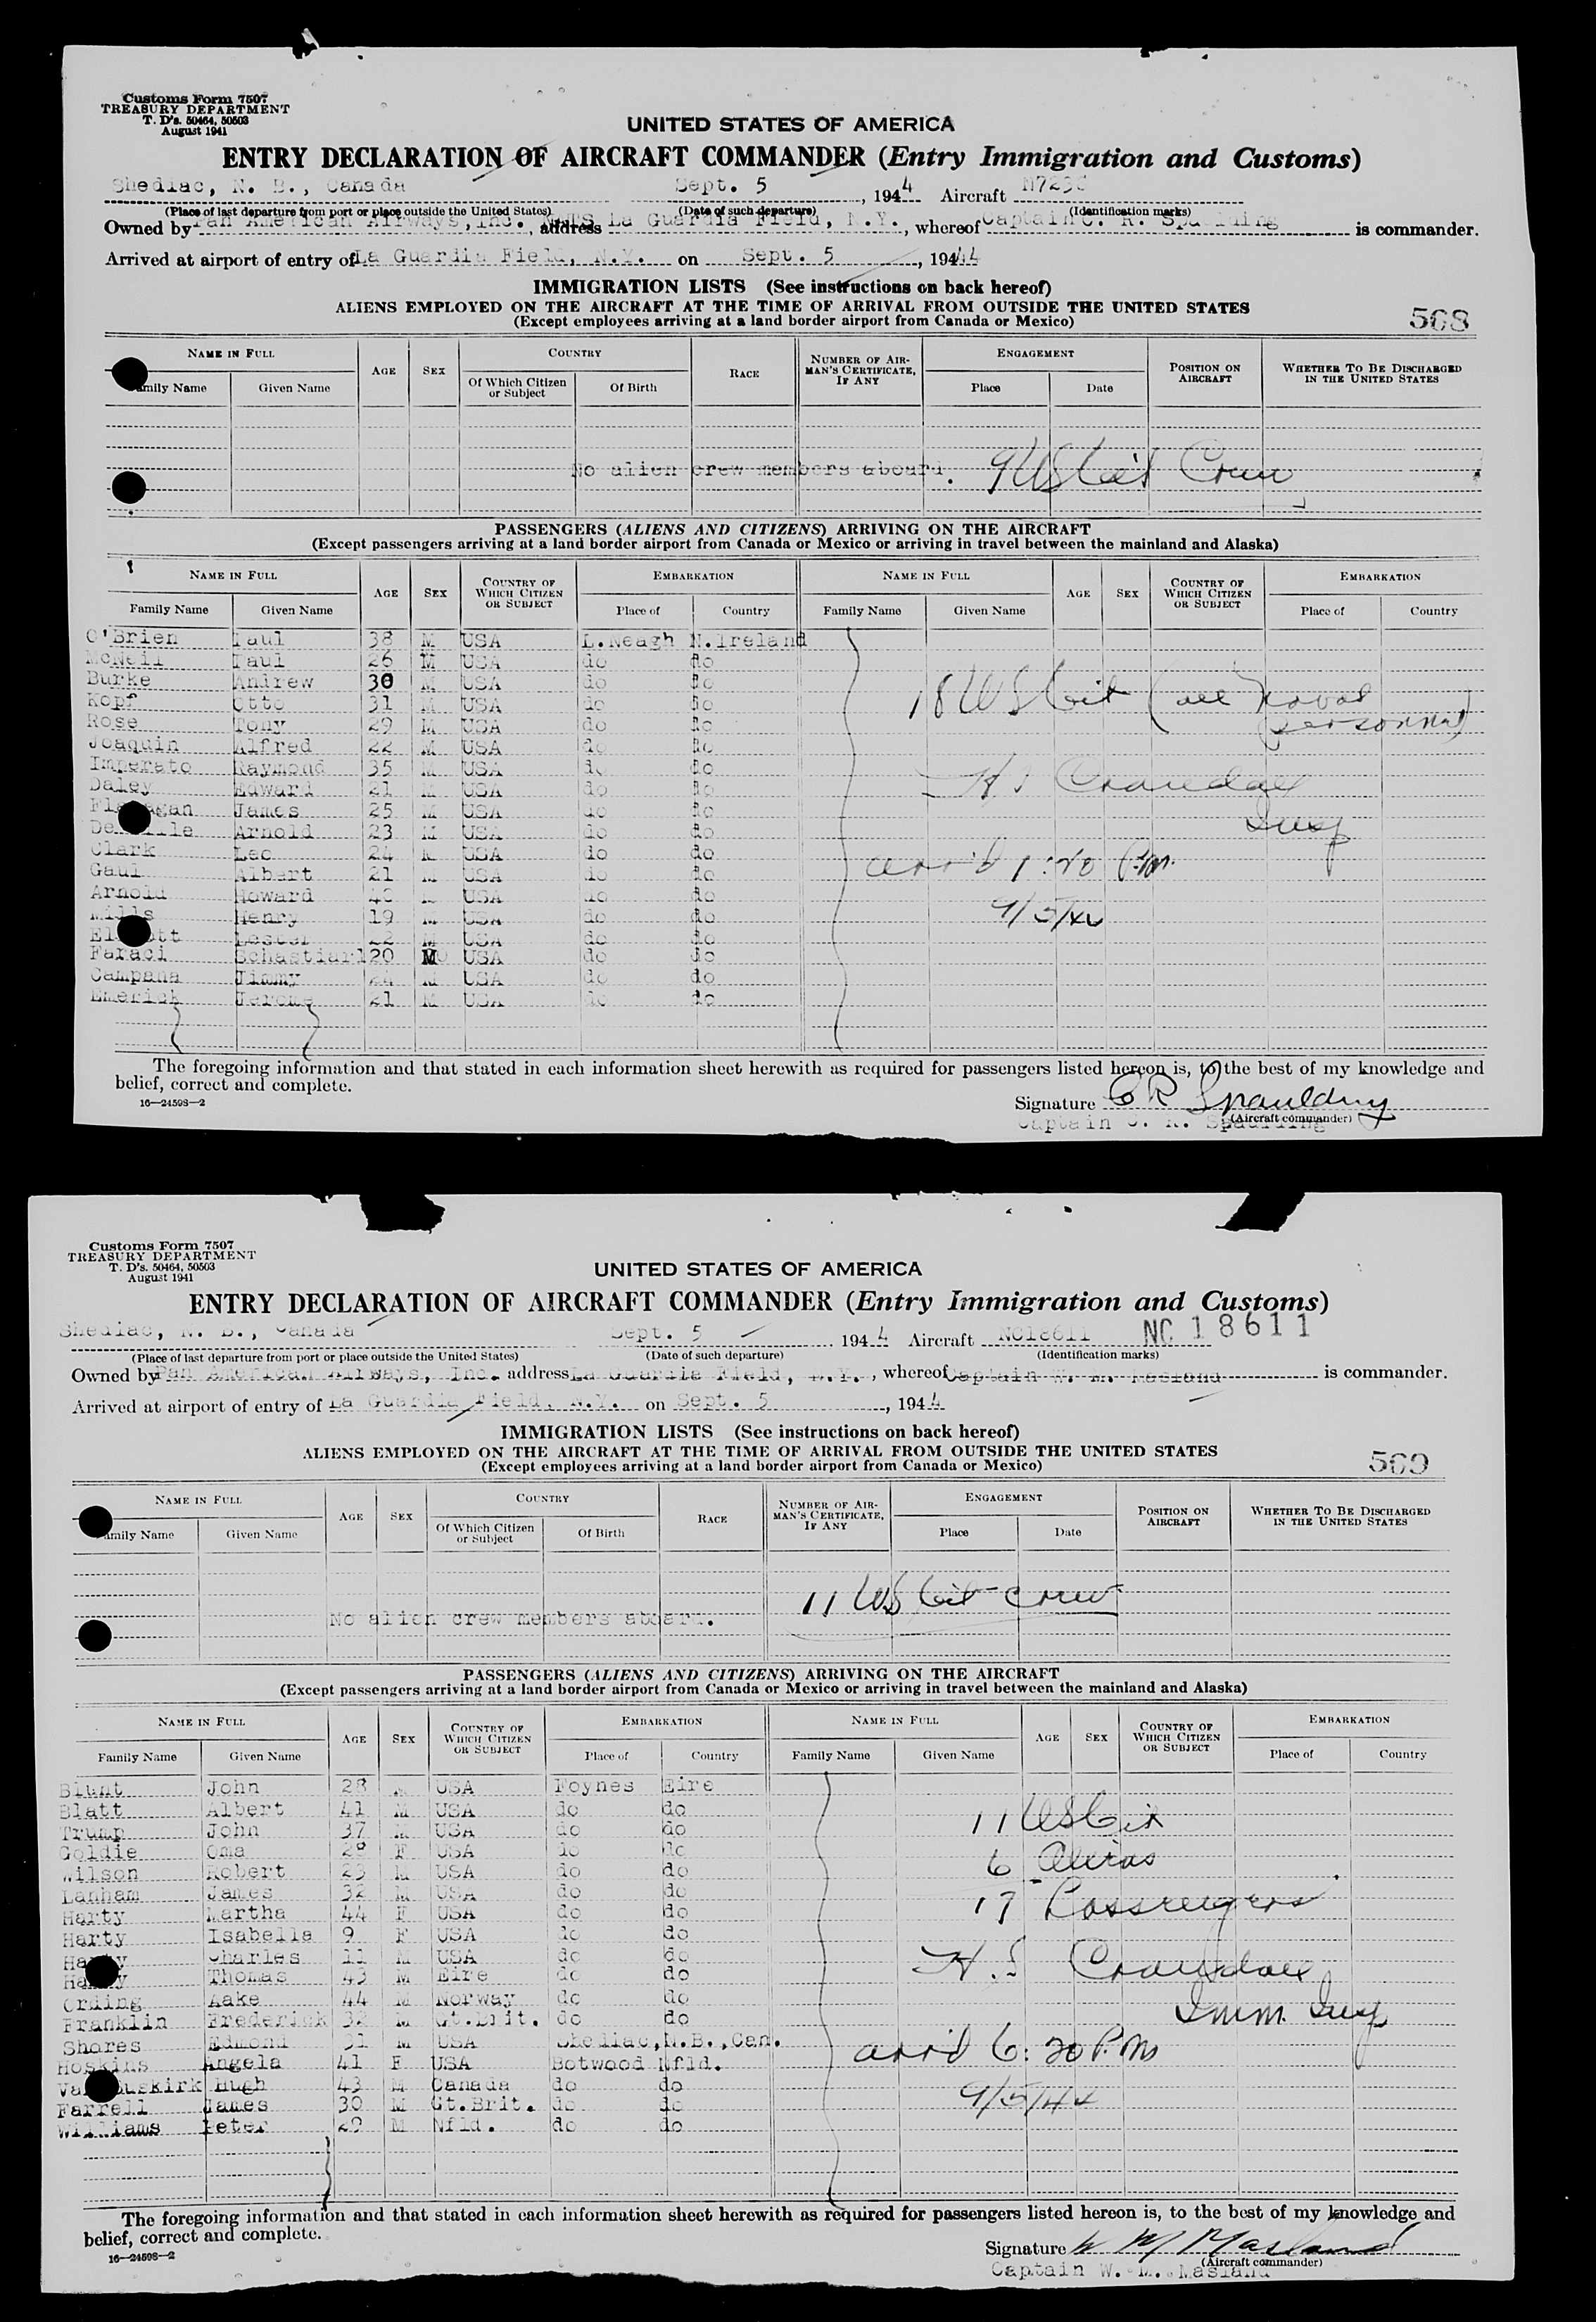 Customs Form 7507
TREASURY DEPARTMENT
T. D's. 50464, 50503
August 1941
UNITED STATES OF AMERICA
ENTRY DECLARATION OF AIRCRAFT COMMANDER (Entry Immigration and Customs)
Shediac, N. B., Canada Sept. 5, 1944 Aircraft
(Place of last departure from port or place outside the United States) (Date of such departure) (Identification marks)
Owned by Pan American Airways, Inc. address La Guardia Field, N.Y., whereof Captain C. R. Spaulding is commander.
Arrived at airport of entry of La Guardia Field, N.Y. on Sept. 5, 1944
IMMIGRATION LISTS (See instructions on back hereof)
ALIENS EMPLOYED ON THE AIRCRAFT AT THE TIME OF ARRIVAL FROM OUTSIDE THE UNITED STATES
(Except employees arriving at a land border airport from Canada or Mexico)
568
NAME IN FULL AGE SEX COUNTRY RACE NUMBER OF AIRMAN'S CERTIFICATE, IF ANY ENGAGEMENT POSITION ON AIRCRAFT WHETHER TO BE DISCHARGED IN THE UNITED STATES
Family Name Given Name Of Which Citizen or Subject Of Birth Place Date
No alien crew members aboard. 9 US Cit Crew
PASSENGERS (ALIENS AND CITIZENS) ARRIVING ON THE AIRCRAFT
(Except passengers arriving at a land border airport from Canada or Mexico or arriving in travel between the mainland and Alaska)
NAME IN FULL AGE SEX COUNTRY OF WHICH CITIZEN OR SUBJECT EMBARKATION NAME IN FULL AGE SEX COUNTRY OF WHICH CITIZEN OR SUBJECT EMBARKATION
Family Name Given Name Place of Country Family Name Given Name Place of Country
O'Brien Paul 38 M USA L.Neagh N.Ireland
McNeil Paul 26 M USA do do
Burke Andrew 30 M USA do do
Kopf Otto 31 M USA do do
18 US Cit (all naval personnel)
Rose Tony 29 M USA do do
Joaquin Alfred 22 M USA do do
Imperato Raymond 35 M USA do do
H S Crandall
Daley Edward 21 M USA do do
Flanagan James 25 M USA do do
Insp
De ille Arnold 23 M USA do do
Clark Leo 24 M USA do do
arr'd 1:20 P.M.
Gaul Albert 21 M USA do do
Arnold Howard 40 USA do do
9/5/44
Mills Henry 19 M USA do do
Elliott Lester 22 M USA do do
Faraci 20 M USA do do
Campana Jimmy 24 M USA do do
Emerick Jerome 21 M USA do do
The foregoing information and that stated in each information sheet herewith as required for passengers listed hereon is, to the best of my knowledge and
belief, correct and complete.
16—24598—2
Signature C R Spaulding
(Aircraft commander)
Captain C. R. Spaulding
Customs Form 7507
TREASURY DEPARTMENT
T. D's. 50464, 50503
August 1941
UNITED STATES OF AMERICA
ENTRY DECLARATION OF AIRCRAFT COMMANDER (Entry Immigration and Customs)
Shediac, N. B., Canada Sept. 5 1944 Aircraft NC18611 NC 18611
(Place of last departure from port or place outside the United States) (Date of such departure) (Identification marks)
Owned by Pan American Airways, Inc. address La Guardia Field, N.Y., whereof Captain W. M. Masland is commander.
Arrived at airport of entry of La Guardia Field, N.Y. on Sept. 5, 1944
IMMIGRATION LISTS (See instructions on back hereof)
ALIENS EMPLOYED ON THE AIRCRAFT AT THE TIME OF ARRIVAL FROM OUTSIDE THE UNITED STATES
(Except employees arriving at a land border airport from Canada or Mexico)
569
NAME IN FULL AGE SEX COUNTRY RACE NUMBER OF AIRMAN'S CERTIFICATE, IF ANY ENGAGEMENT POSITION ON AIRCRAFT WHETHER TO BE DISCHARGED IN THE UNITED STATES
Family Name Given Name Of Which Citizen or Subject Of Birth Place Date
No alien crew members aboard. 11 US Cit crew
PASSENGERS (ALIENS AND CITIZENS) ARRIVING ON THE AIRCRAFT
(Except passengers arriving at a land border airport from Canada or Mexico or arriving in travel between the mainland and Alaska)
NAME IN FULL AGE SEX COUNTRY OF WHICH CITIZEN OR SUBJECT EMBARKATION NAME IN FULL AGE SEX COUNTRY OF WHICH CITIZEN OR SUBJECT EMBARKATION
Family Name Given Name Place of Country Family Name Given Name Place of Country
Blunt John 28 M USA Foynes Eire
Blatt Albert 41 M USA do do
11 US Cit
Trump John 37 M USA do do
Goldie Oma 28 F USA do do
6 Aliens
Wilson Robert 23 M USA do do
Lanham James 32 M USA do do
17 Passengers
Harty Martha 44 F USA do do
Harty Isabella 9 F USA do do
Harty Charles 11 M USA do do
H. S Crandall
Harty Thomas 43 M Eire do do
Ording Aake 44 M Norway do do
Imm. Insp
Franklin Frederick 32 M Gt.Brit. do do
Shores Edmond 31 M USA Shediac,N.B.,Can.
arr'd 6:20 P.M
Hoskins Angela 41 F USA Botwood Nfld.
Van Buskirk Hugh 43 M Canada do do
9/5/44
Farrell James 30 M Gt.Brit. do do
Williams Peter 29 M Nfld. do do
The foregoing information and that stated in each information sheet herewith as required for passengers listed hereon is, to the best of my knowledge and
belief, correct and complete.
16—24598—2
Signature W M Masland
(Aircraft commander)
Captain W. M. Masland